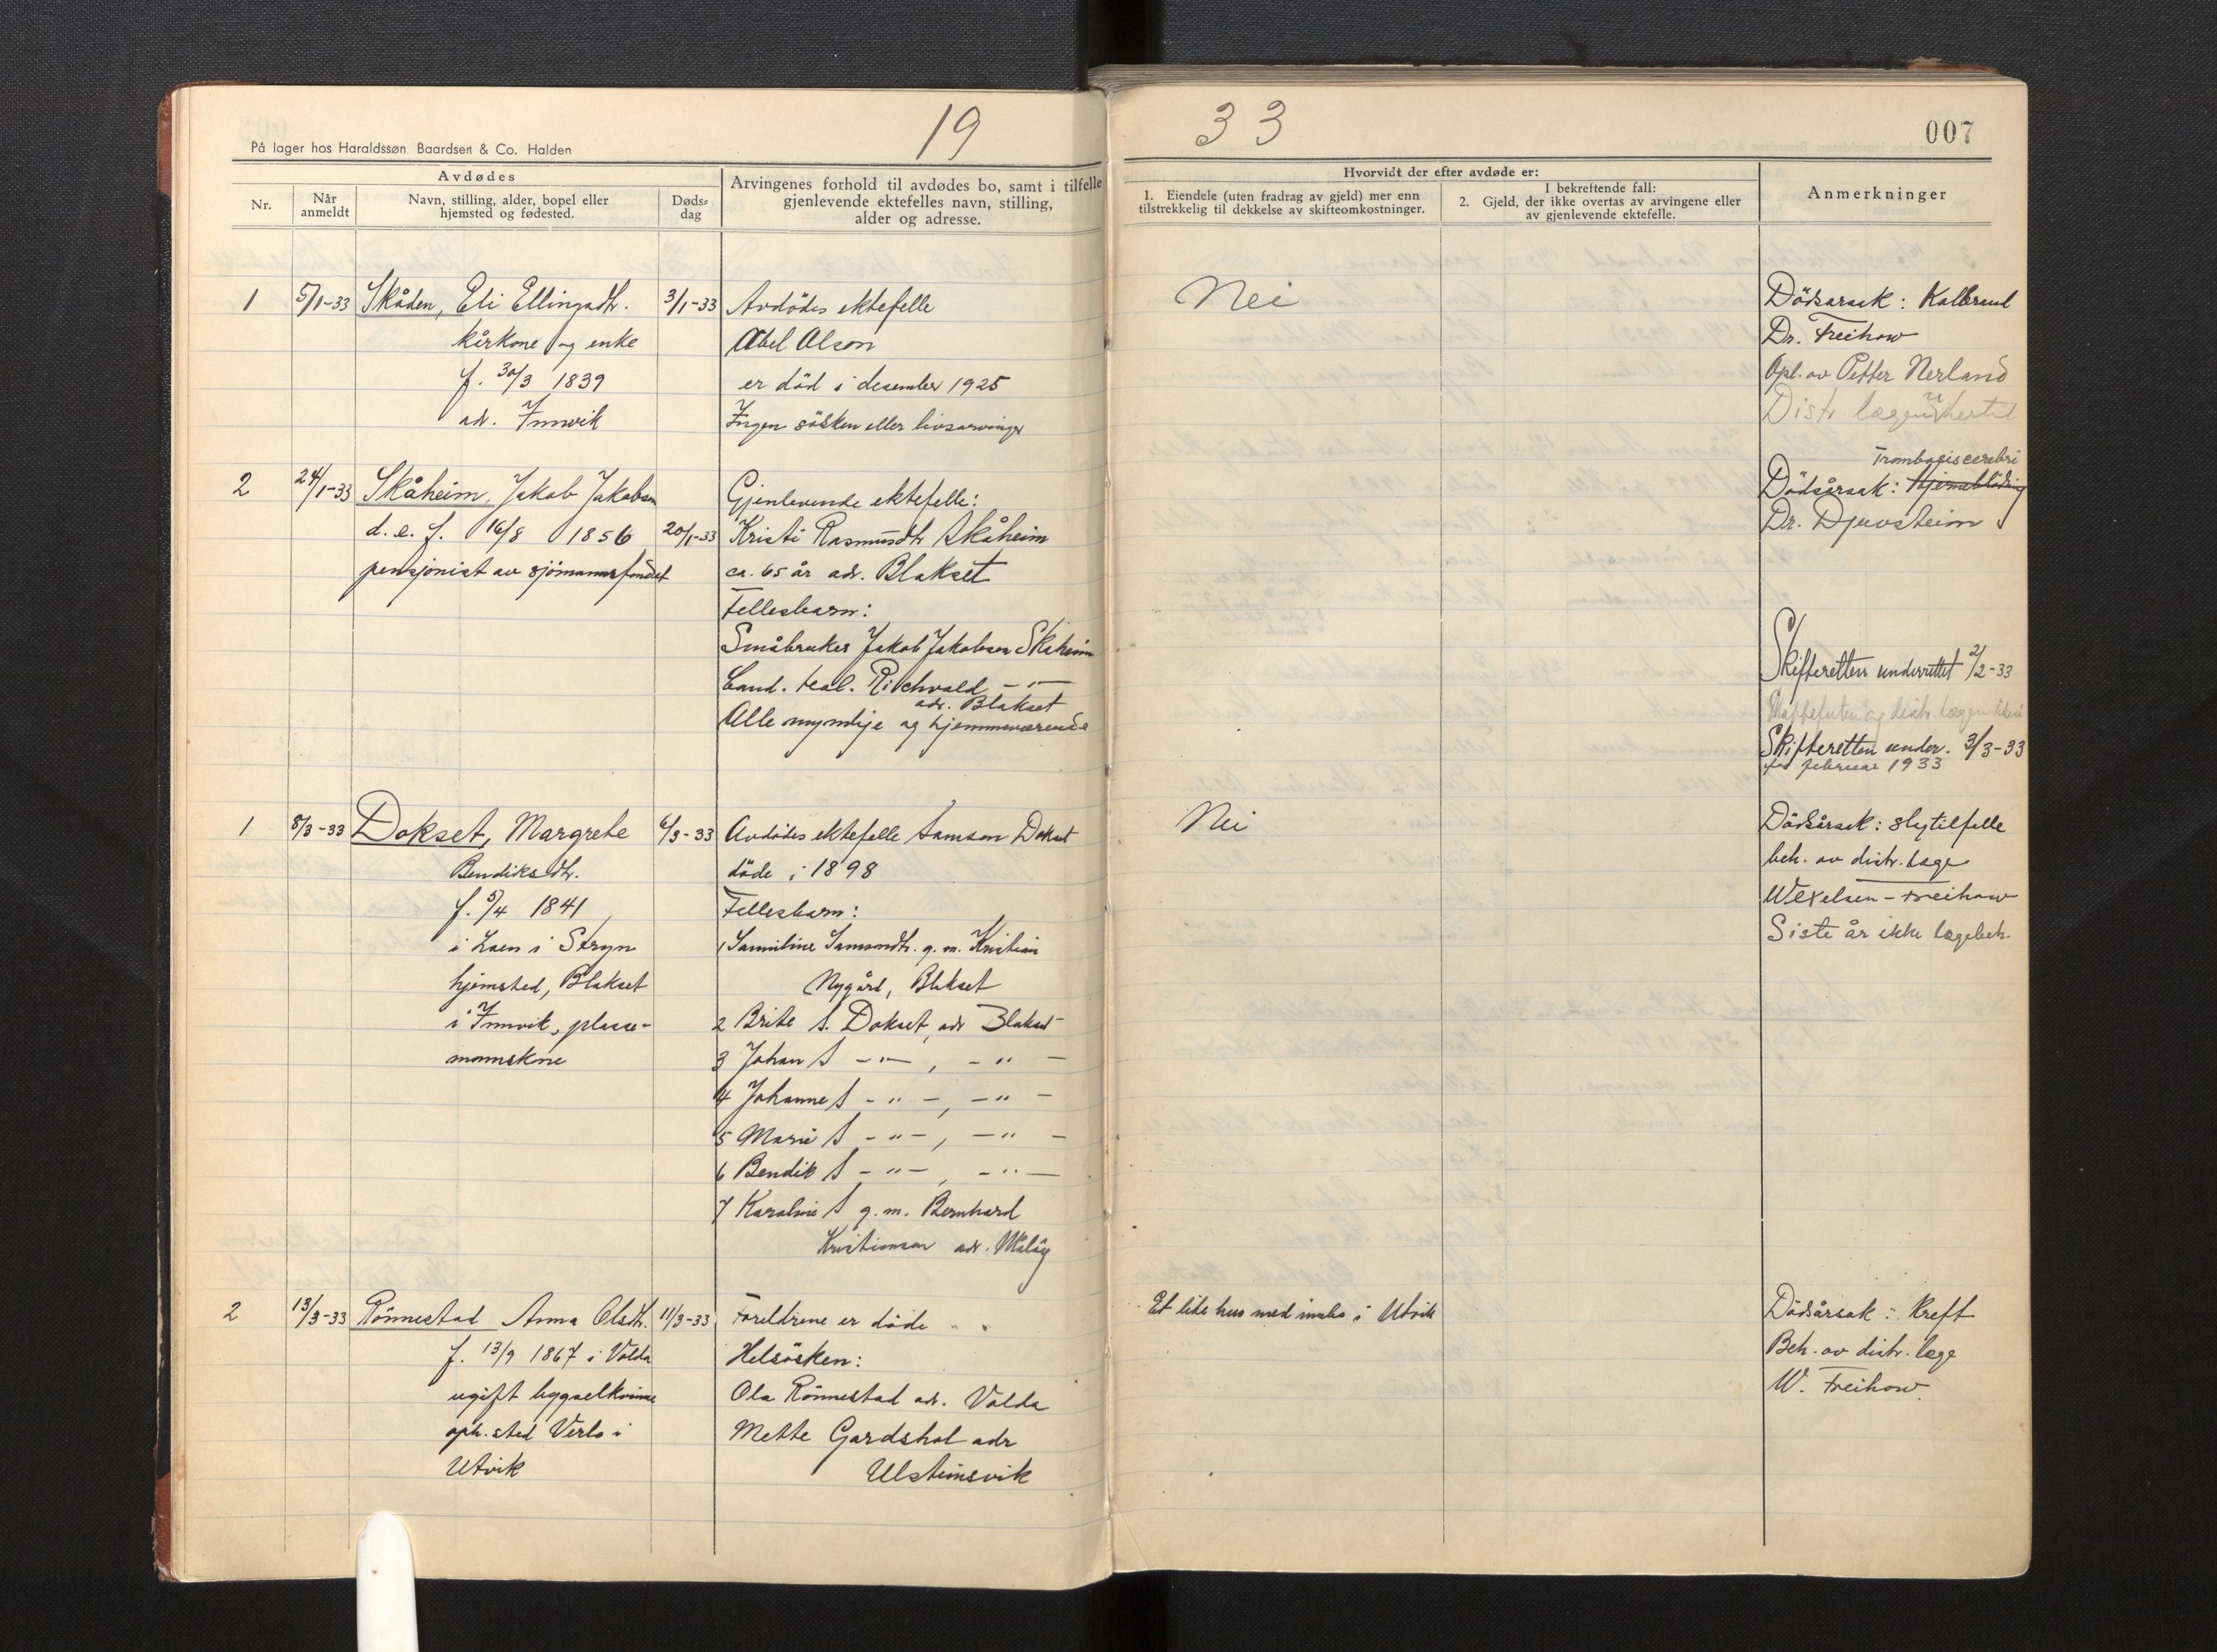 19 33
007
På lager hos Haraldssøn Baardsen & Co. Halden
Avdødes
Nr.
Når anmeldt
Navn, stilling, alder, bopel eller hjemsted og fødested.
Døds-dag
Arvingenes forhold til avdødes bo, samt i tilfelle gjenlevende ektefelles navn, stilling, alder og adresse.
Hvorvidt der efter avdøde er:
1. Eiendele (uten fradrag av gjeld) mer enn tilstrekkelig til dekkelse av skifteomkostninger.
I bekreftende fall:
2. Gjeld, der ikke overtas av arvingene eller av gjenlevende ektefelle.
Anmerkninger
1 5/1-33 Skåden, Eli Ellingsdtr. 3/1-33
kårkone og enke
f. 30/3 1839
adr. Innvik
Avdödes ektefelle
Abel Olson
er död i desember 1925
Ingen sösken eller livsarvinger
Nei
Dödsarsak: Kolbrand
Dr. Freihow
Opl. av Petter Nerland
Distr. lægen
2 24/1-33 Skåheim, Jakob Jakobsen
d.e. f. 16/8 1856 20/1-33
pensjonist av sjömannsfondet
Gjenlevende ektefelle:
Kristi Rasmusdtr Skåheim
ca. 65 år adr. Blakset
Fellesbarn:
Småbruker Jakob Jakobsen Skåheim
Cand. real. Richvald - " -
adr. Blakset
Alle myndige og hjemmeværende
Trombosis cerebri
Dödsårsak: Hjerneblödning
Dr. Djuvsteim
Skifteretten underrettet 2/2-33
og distr. lægen
Skifteretten under. 3/3-33
for februar 1933
1 8/3-33 Dokset, Margrete 6/3-33
Bendiksdtr.
f. 5/4 1841
i Loen i Stryn
hjemsted, Blakset
i Innvik, plass-
mannskone
Avdödes ektefelle Samson Dokset
döde i 1898
Fellesbarn:
1 Samuline Samsondtr. g.m. Kristian
Nygård, Blakset
2 Brite S. Dokset, adr Blakset
3 Johan S - " - , - " -
4 Johanne S - " - , - " -
5 Marie S - " - , - " -
6 Bendik S - " - , - " -
7 Karoline S g.m. Bernhard
Kristiansen adr. Målöy
Nei
Dödsårsak: slagtilfelle
beh. av distr. læge
Wexelsen-Freihow
Siste år ikke lægebeh.
2 13/3-33 Rönnestad Anna Olsdtr. 11/3-33
f. 13/9 1867 i Volda
ugift bygselkvinne
oph. sted Verlo i
Utvik
Foreldrene er döde
Helsösken:
Ola Rönnestad adr. Volda
Mette Gardshol adr
Ulsteinsvik
Et lite hus med innbo i Utvik
Dödsårsak: Kreft
Beh. av distr. læge
W. Freihow.